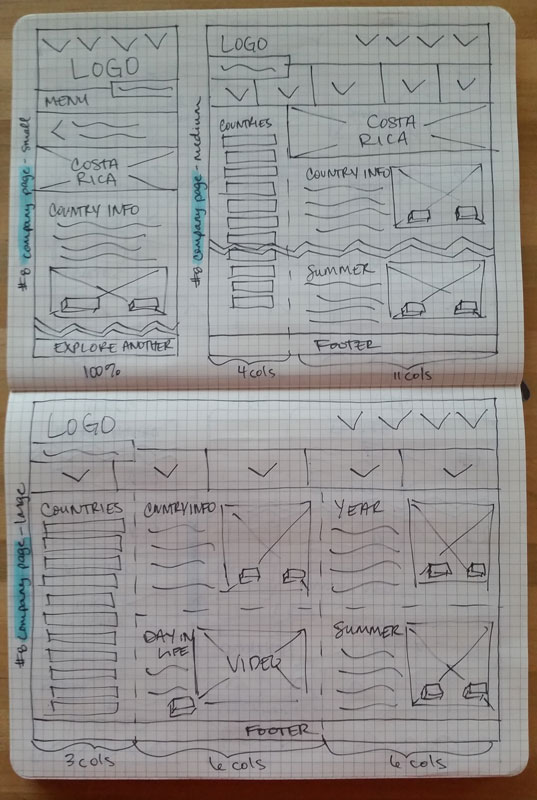 #8 company page - small
LOGO
MENU
COSTA
RICA
COUNTRY INFO
EXPLORE ANOTHER
100%
#8 company page - medium
LOGO
COUNTRIES
COSTA
RICA
COUNTRY INFO
SUMMER
FOOTER
4 cols
11 cols
#8 company page - large
LOGO
COUNTRIES
CNTRY INFO
YEAR
DAY IN
LIFE
VIDEO
SUMMER
FOOTER
3 cols
6 cols
6 cols